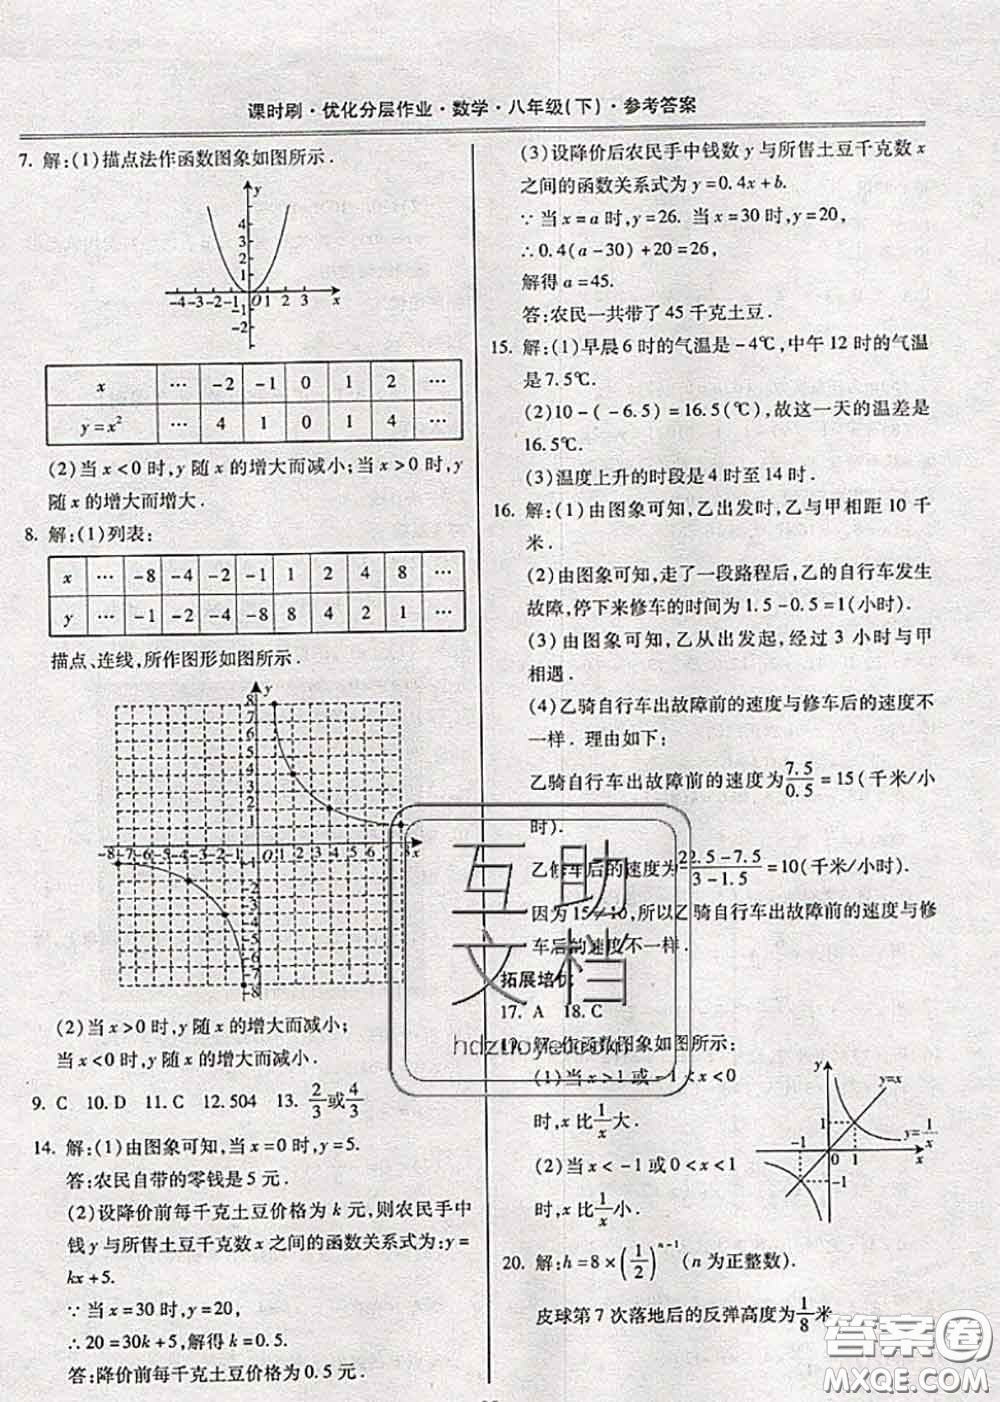 课时刷·优化分层作业·数学·八年级(下)·参考答案
7. 解:(1)描点法作函数图象如图所示.
y
4
3
2
1
-4 -3 -2 -1 O 1 2 3 x
-1
-2
x … -2 -1 0 1 2 …
y=x² … 4 1 0 1 4 …
(2)当 x<0 时,y 随 x 的增大而减小;当 x>0 时,y
随 x 的增大而增大.
8. 解:(1)列表:
x … -8 -4 -2 -1 1 2 4 8 …
y … -1 -2 -4 -8 8 4 2 1 …
描点、连线,所作图形如图所示.
y
8
7
6
5
4
3
2
1
-8 -7 -6 -5 -4 -3 -2 -1 O 1 2 3 4 5 6 7 8 x
-8
(2)当 x>0 时,y 随 x 的增大而减小;
当 x<0 时,y 随 x 的增大而减小.
9. C 10. D 11. C 12. 504 13. 2/3或4/3
14. 解:(1)由图象可知,当 x=0 时,y=5.
答:农民自带的零钱是 5 元.
(2)设降价前每千克土豆价格为 k 元,则农民手中
钱 y 与所售土豆千克数 x 之间的函数关系式为:y=
kx+5.
∵当 x=30 时,y=20,
∴20=30k+5,解得 k=0.5.
答:降价前每千克土豆价格为 0.5 元.
(3)设降价后农民手中钱数 y 与所售土豆千克数 x
之间的函数关系式为 y=0.4x+b.
∵当 x=a 时,y=26. 当 x=30 时,y=20,
∴0.4(a-30)+20=26,
解得 a=45.
答:农民一共带了 45 千克土豆.
15. 解:(1)早晨 6 时的气温是 -4℃,中午 12 时的气温
是 7.5℃.
(2)10-(-6.5)=16.5(℃),故这一天的温差是
16.5℃.
(3)温度上升的时段是 4 时至 14 时.
16. 解:(1)由图象可知,乙出发时,乙与甲相距 10 千
米.
(2)由图象可知,走了一段路程后,乙的自行车发生
故障,停下来修车的时间为 1.5-0.5=1(小时).
(3)由图象可知,乙从出发起,经过 3 小时与甲
相遇.
(4)乙骑自行车出故障前的速度与修车后的速度不
一样. 理由如下:
乙骑自行车出故障前的速度为7.5/0.5=15(千米/小
时).
乙修车后的速度为(22.5-7.5)/(3-1.5)=10(千米/小时).
因为 15≠10,所以乙骑自行车出故障前的速度与修
车后的速度不一样.
拓展培优
17. A 18. C
19. 解:作函数图象如图所示:
(1)当 x>1 或 -1<x<0
时,x 比1/x大.
(2)当 x<-1 或 0<x<1
时,x 比1/x小.
y
y=x
y=1/x
1
-1
0 1 x
-1
20. 解:h=8×(1/2)ⁿ⁻¹(n 为正整数).
皮球第 7 次落地后的反弹高度为1/8米.
互助
文档
hdzuoye.com
答案圈
MXQE.COM